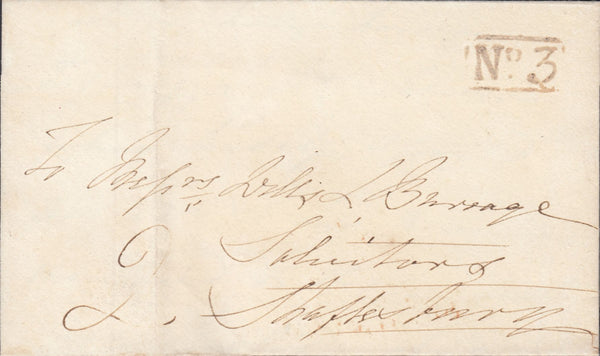 No 3
To Messrs Willis & Burridge
Solicitors
2. Shaftesbury